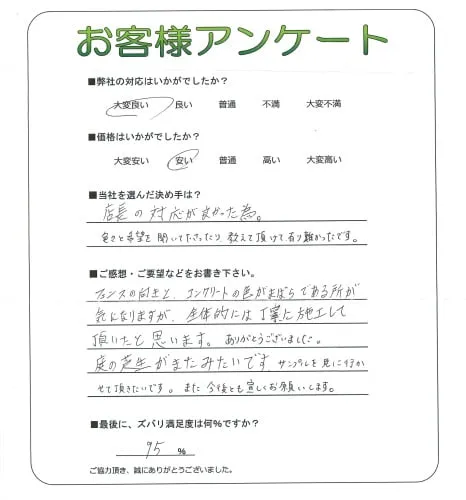 お客様アンケート
■弊社の対応はいかがでしたか？
大変良い 良い 普通 不満 大変不満
■価格はいかがでしたか？
大変安い 安い 普通 高い 大変高い
■当社を選んだ決め手は？
店長の対応がよかった為。
色々と希望を聞いてくださったり教えて頂けて有り難かったです。
■ご感想・ご要望などをお書き下さい。
フェンスの向きと、コンクリートの色がまばらである所が
気になりますが、全体的には丁寧に施工して
頂いたと思います。ありがとうございました。
庭の芝生がまたみたいです サンプルを見に行か
せて頂きたいです。また今後とも宜しくお願いします。
■最後に、ズバリ満足度は何%ですか？
95 %
ご協力頂き、誠にありがとうございました。